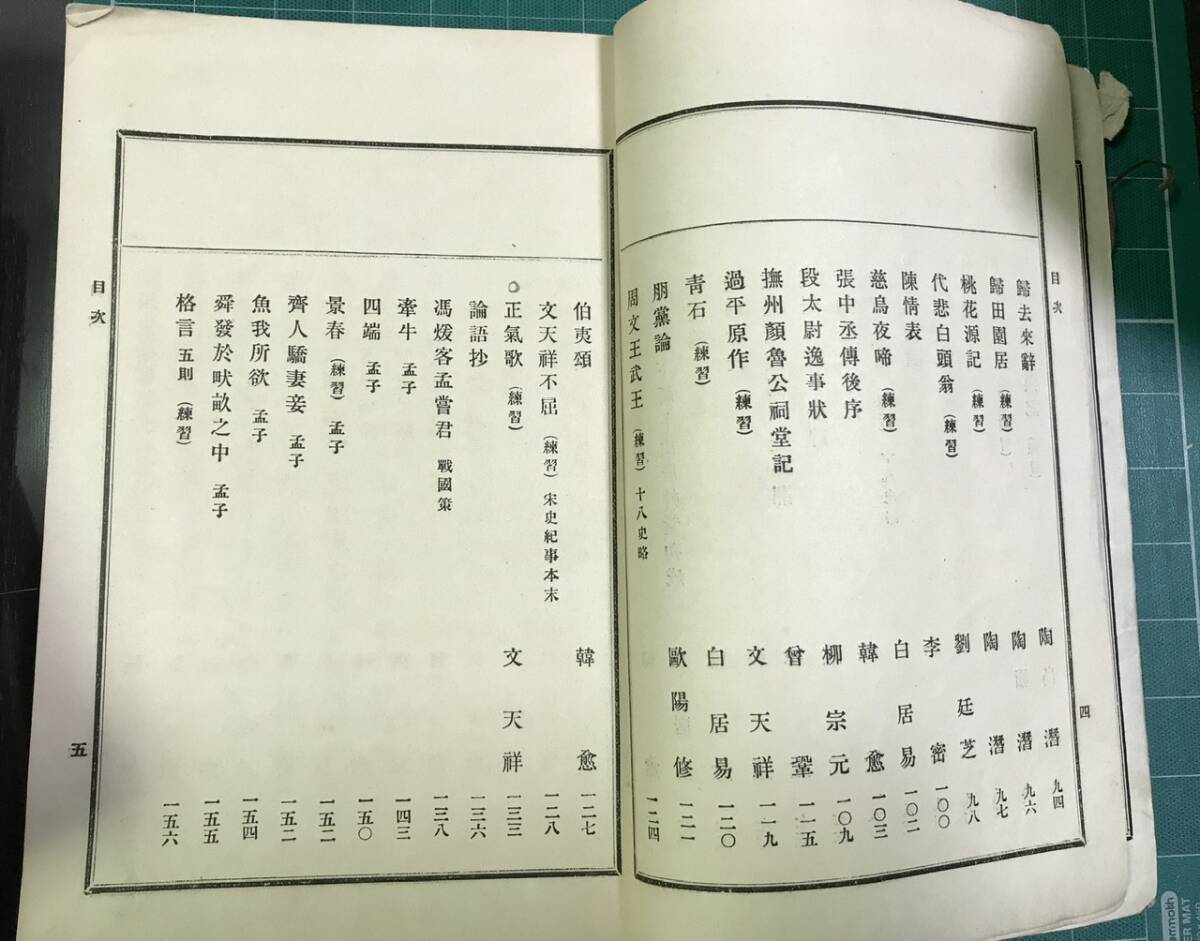 目次
四
歸去來辭 陶潛 九四
歸田園居(練習) 陶潛 九六
桃花源記(練習) 陶潛 九七
代悲白頭翁(練習) 劉廷芝 九八
陳情表 李密 一〇〇
慈烏夜啼(練習) 白居易 一〇二
張中丞傳後序 韓愈 一〇三
段太尉逸事狀 柳宗元 一〇九
撫州顏魯公祠堂記 曾鞏 一一五
過平原作(練習) 文天祥 一一九
青石(練習) 白居易 一二〇
朋黨論 歐陽修 一二一
周文王武王(練習)十八史略 一二四
伯夷頌 韓愈 一二七
文天祥不屈(練習)宋史紀事本末 一二八
○正氣歌(練習) 文天祥 一三三
論語抄 一三六
馮煖客孟嘗君 戰國策 一三八
牽牛 孟子 一四三
四端 孟子 一五〇
景春(練習)孟子 一五二
齊人驕妻妾 孟子 一五二
魚我所欲 孟子 一五四
舜發於畎畝之中 孟子 一五五
格言 五則(練習) 一五六
目次
五
ER MAT